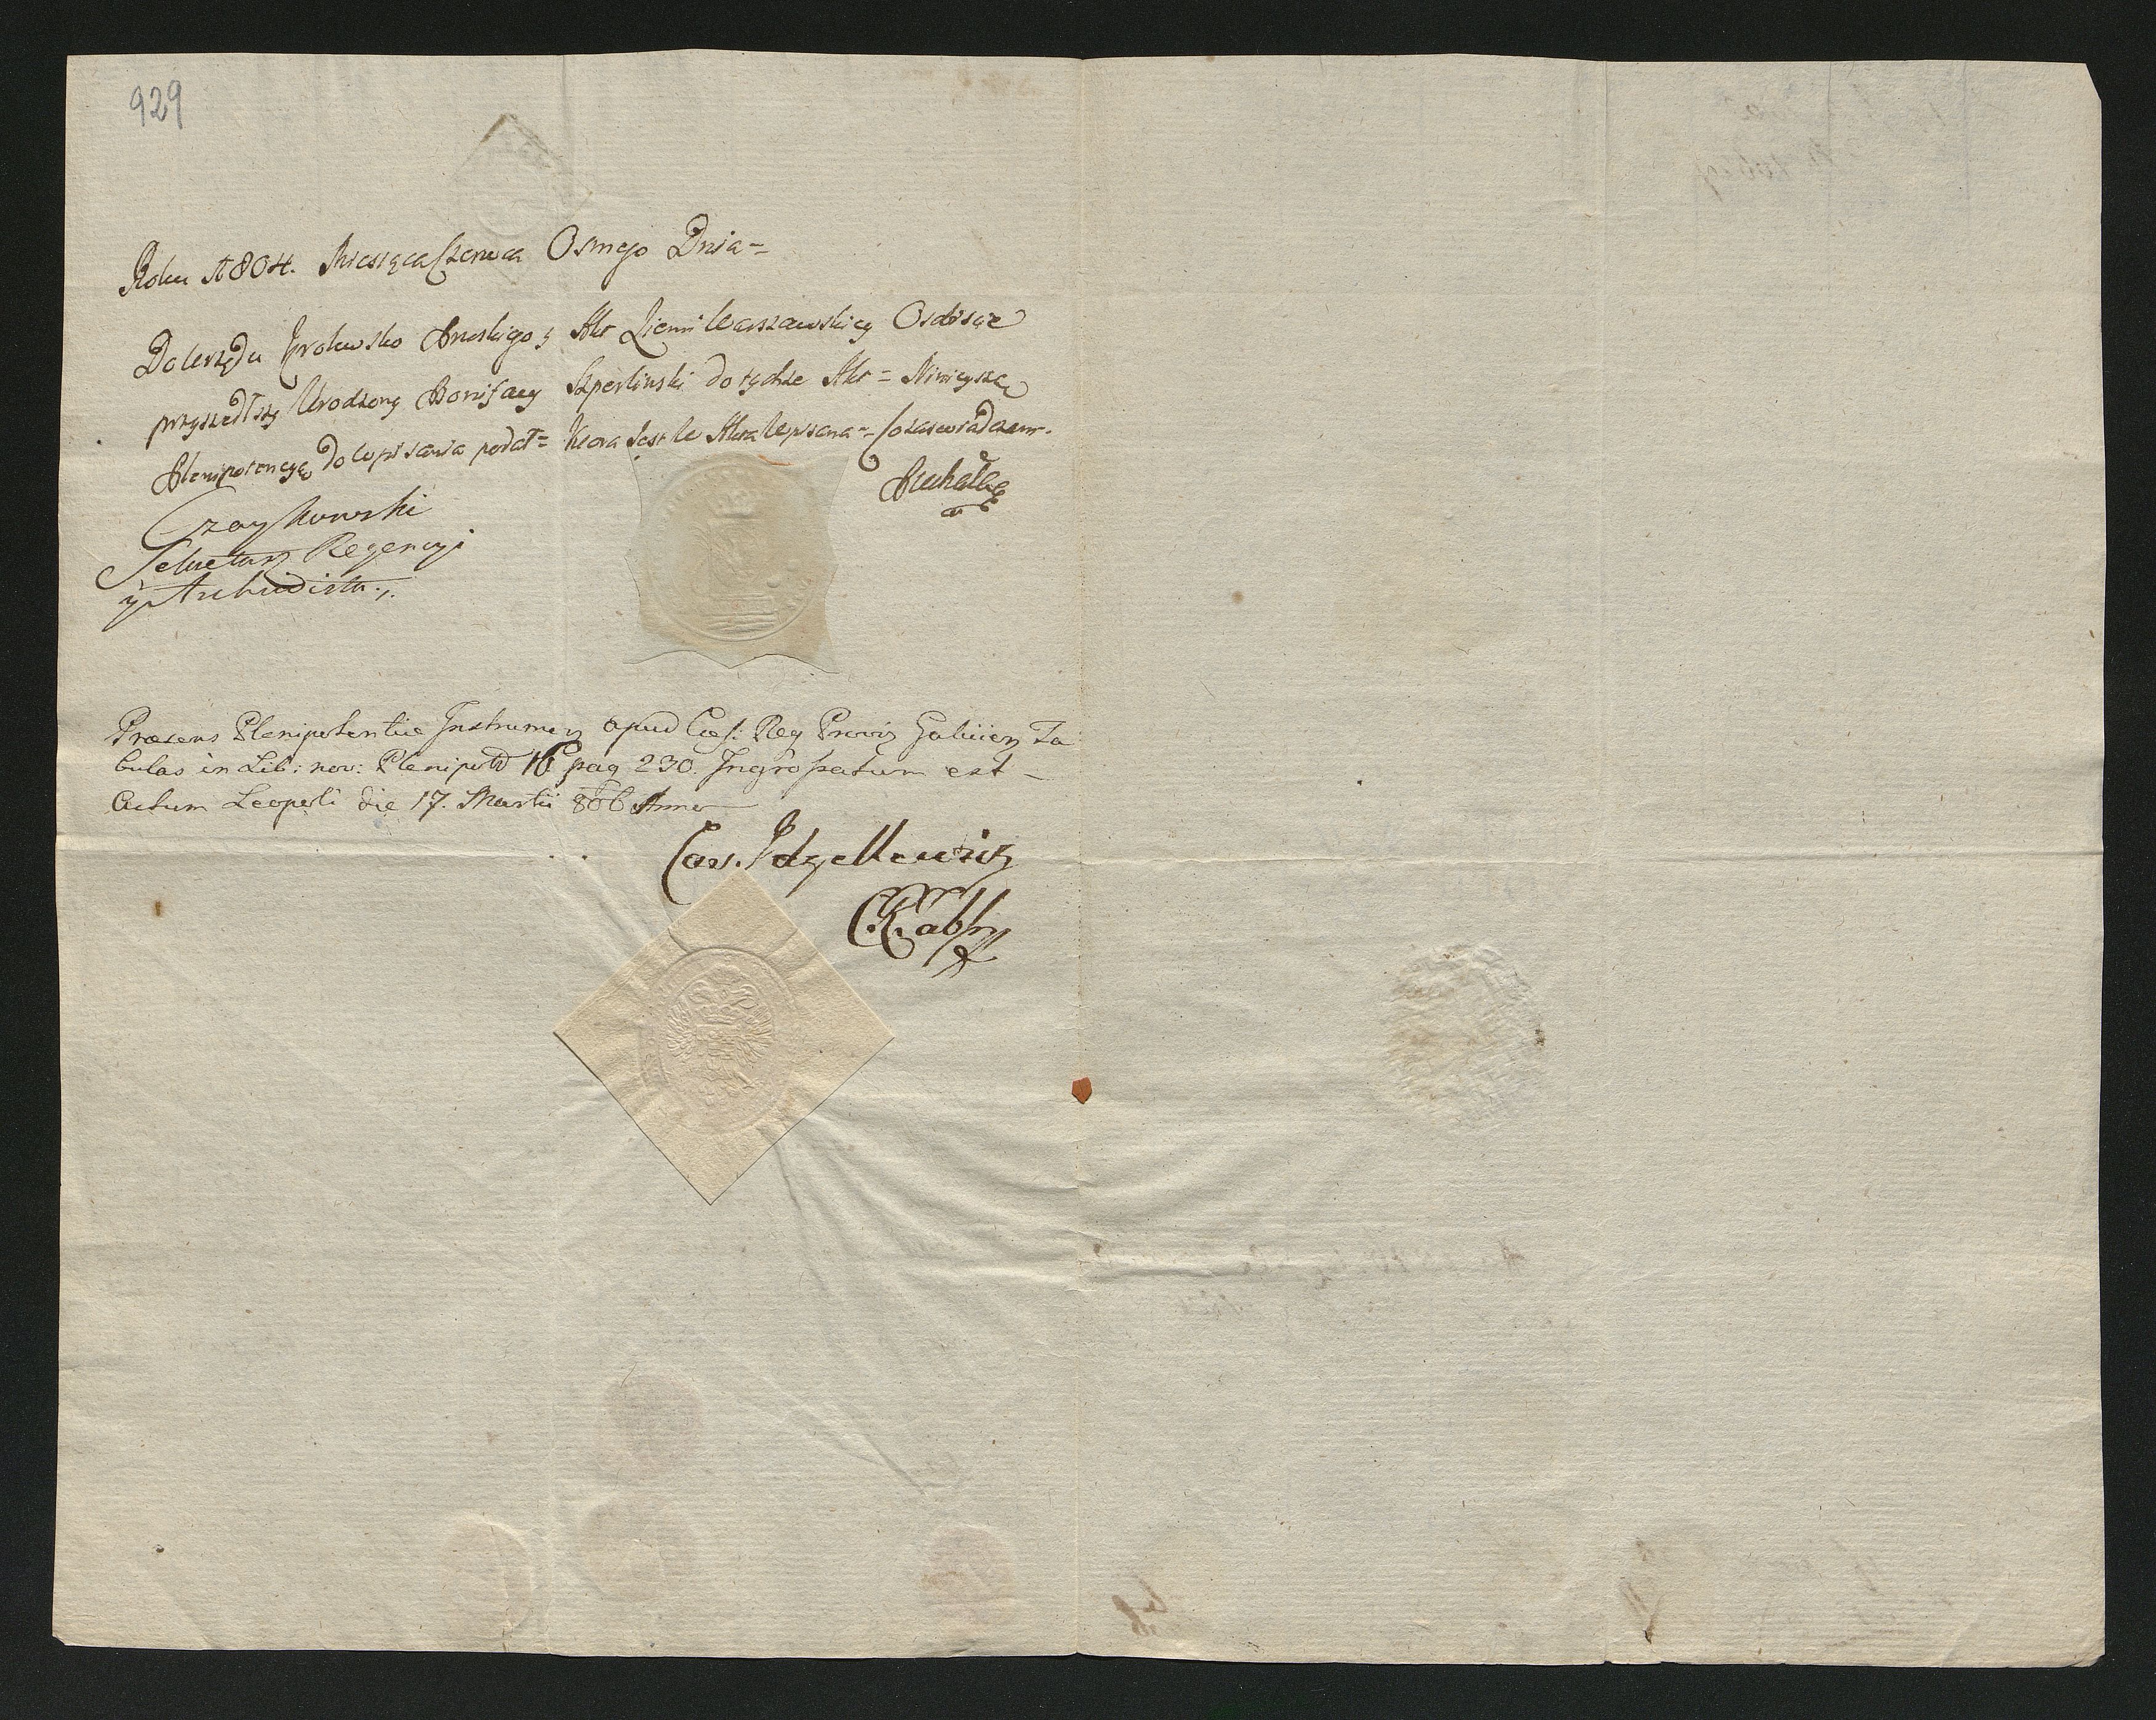 929
Roku 1804. Miesiąca Czerwca Osmego Dnia =
Do Urzędu Krolewsko Pruskiego y Akt Ziemi Warszawskiey Osobiscie
przyszedłszy Urodzony Bonifacy Szperlinski do tychże Akt = Ninieyszą
Plenipotencyą do wpisania podał = Ktora iest w Akta wpisana = Co zaswiadczam.
Czaykowski
Sekretarz Regencyi
y Archivista
Præsens Plenipotentiæ Instrumen apud Cæs: Reg Provin Galicien Ta
bulas in Lib: nov: Plenipot 16 pag 230. Ingrossatum est –
Actum Leopoli die 17. Martii 806 Anno